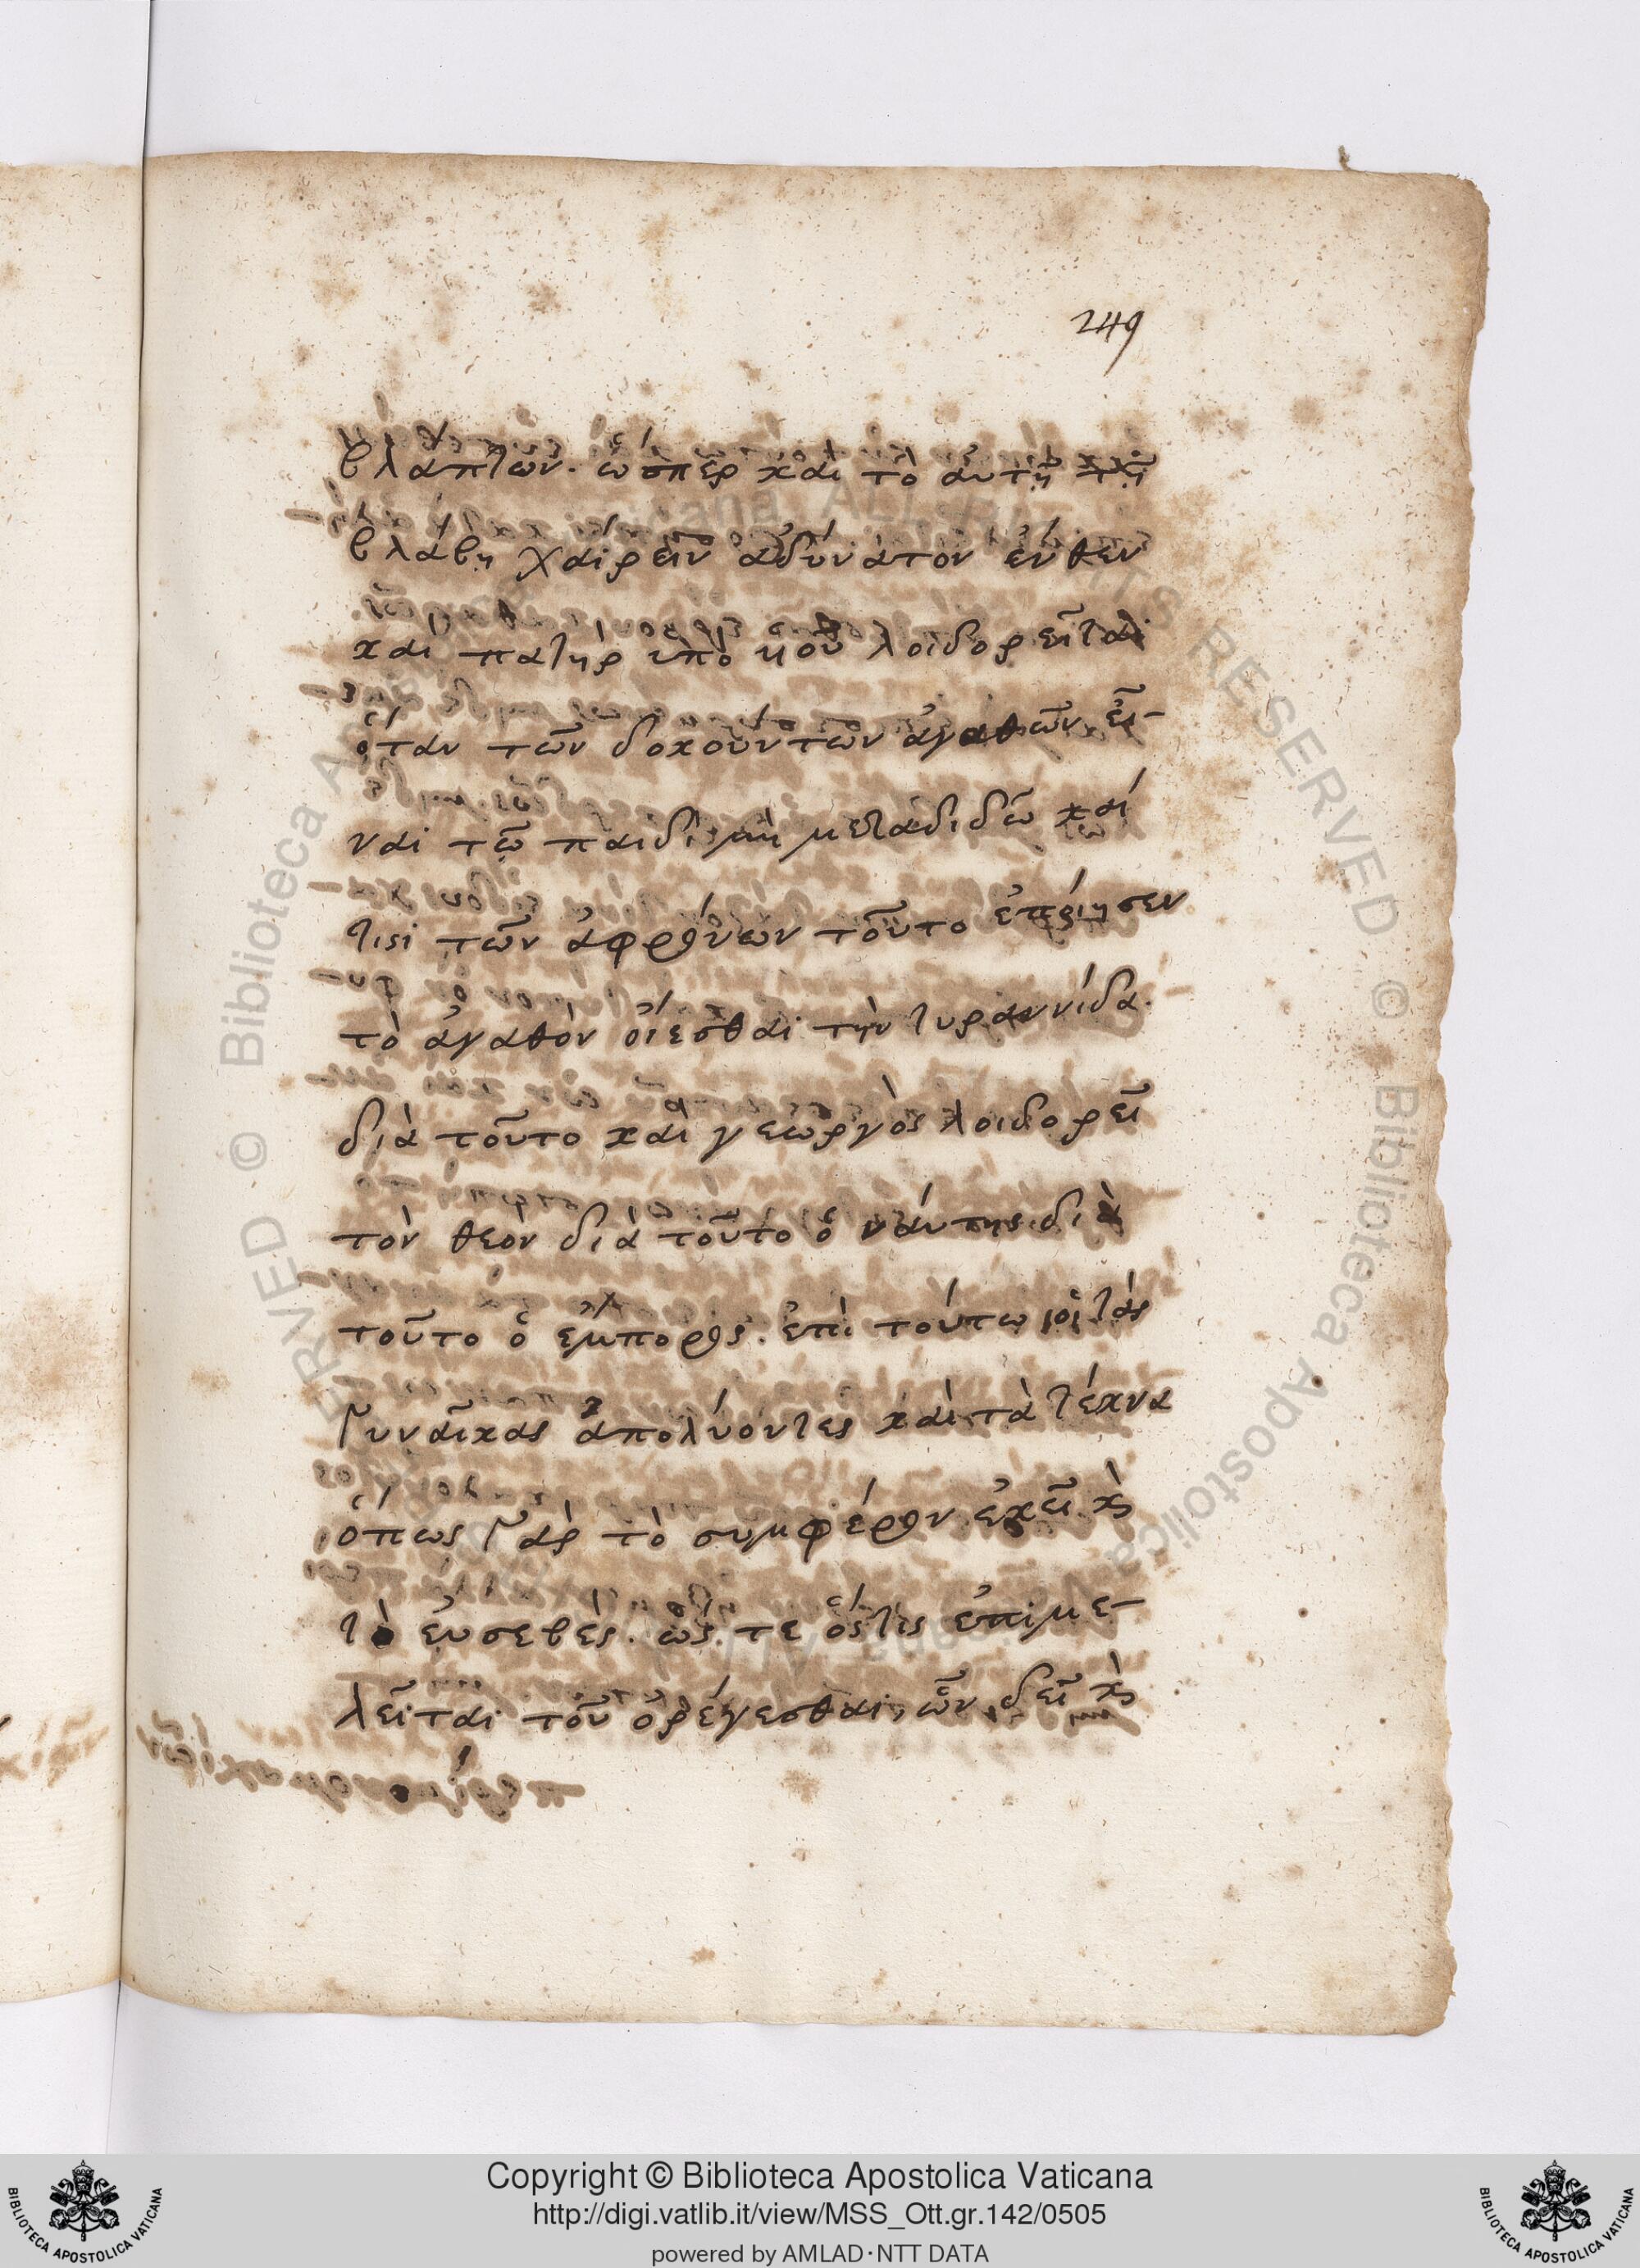 249
βλάπτων. ὥσπερ καὶ τὸ αὐτῇ τῇ
βλάβῃ χαίρειν ἀδύνατον ἔνθεν
καὶ πατὴρ ὑπὸ ὑιοῦ λοιδορεῖται
ὅταν τῶν δοκούντων ἀγαθῶν εἶ-
ναι τῷ παιδὶ μὴ μεταδιδῶ καί
τισι τῶν ἀφρόνων τοῦτο ἐποίησεν
τὸ ἀγαθὸν οἴεσθαι τὴν τυραννίδα.
διὰ τοῦτο καὶ γεωργὸς λοιδορεῖ
τὸν θεὸν διὰ τοῦτο ὁ ναύτης διὰ
τοῦτο ὁ ἔμπορος. ἐπὶ τούτω οἱ τὰς
γυναῖκας ἀπολύοντες καὶ τὰ τέκνα
ὅπως γὰρ τὸ συμφέρον ἐκεῖ κὶ
τὸ ἐυσεβὲς. ὥς τε ὅστις ἐπιμε-
λεῖται τοῦ ὀρέγεσθαι, ὧν δεῖ κὶ
Copyright © Biblioteca Apostolica Vaticana
http://digi.vatlib.it/view/MSS_Ott.gr.142/0505
powered by AMLAD·NTT DATA
BIBLIOTECA APOSTOLICA VATICANA
BIBLIOTECA APOSTOLICA VATICANA